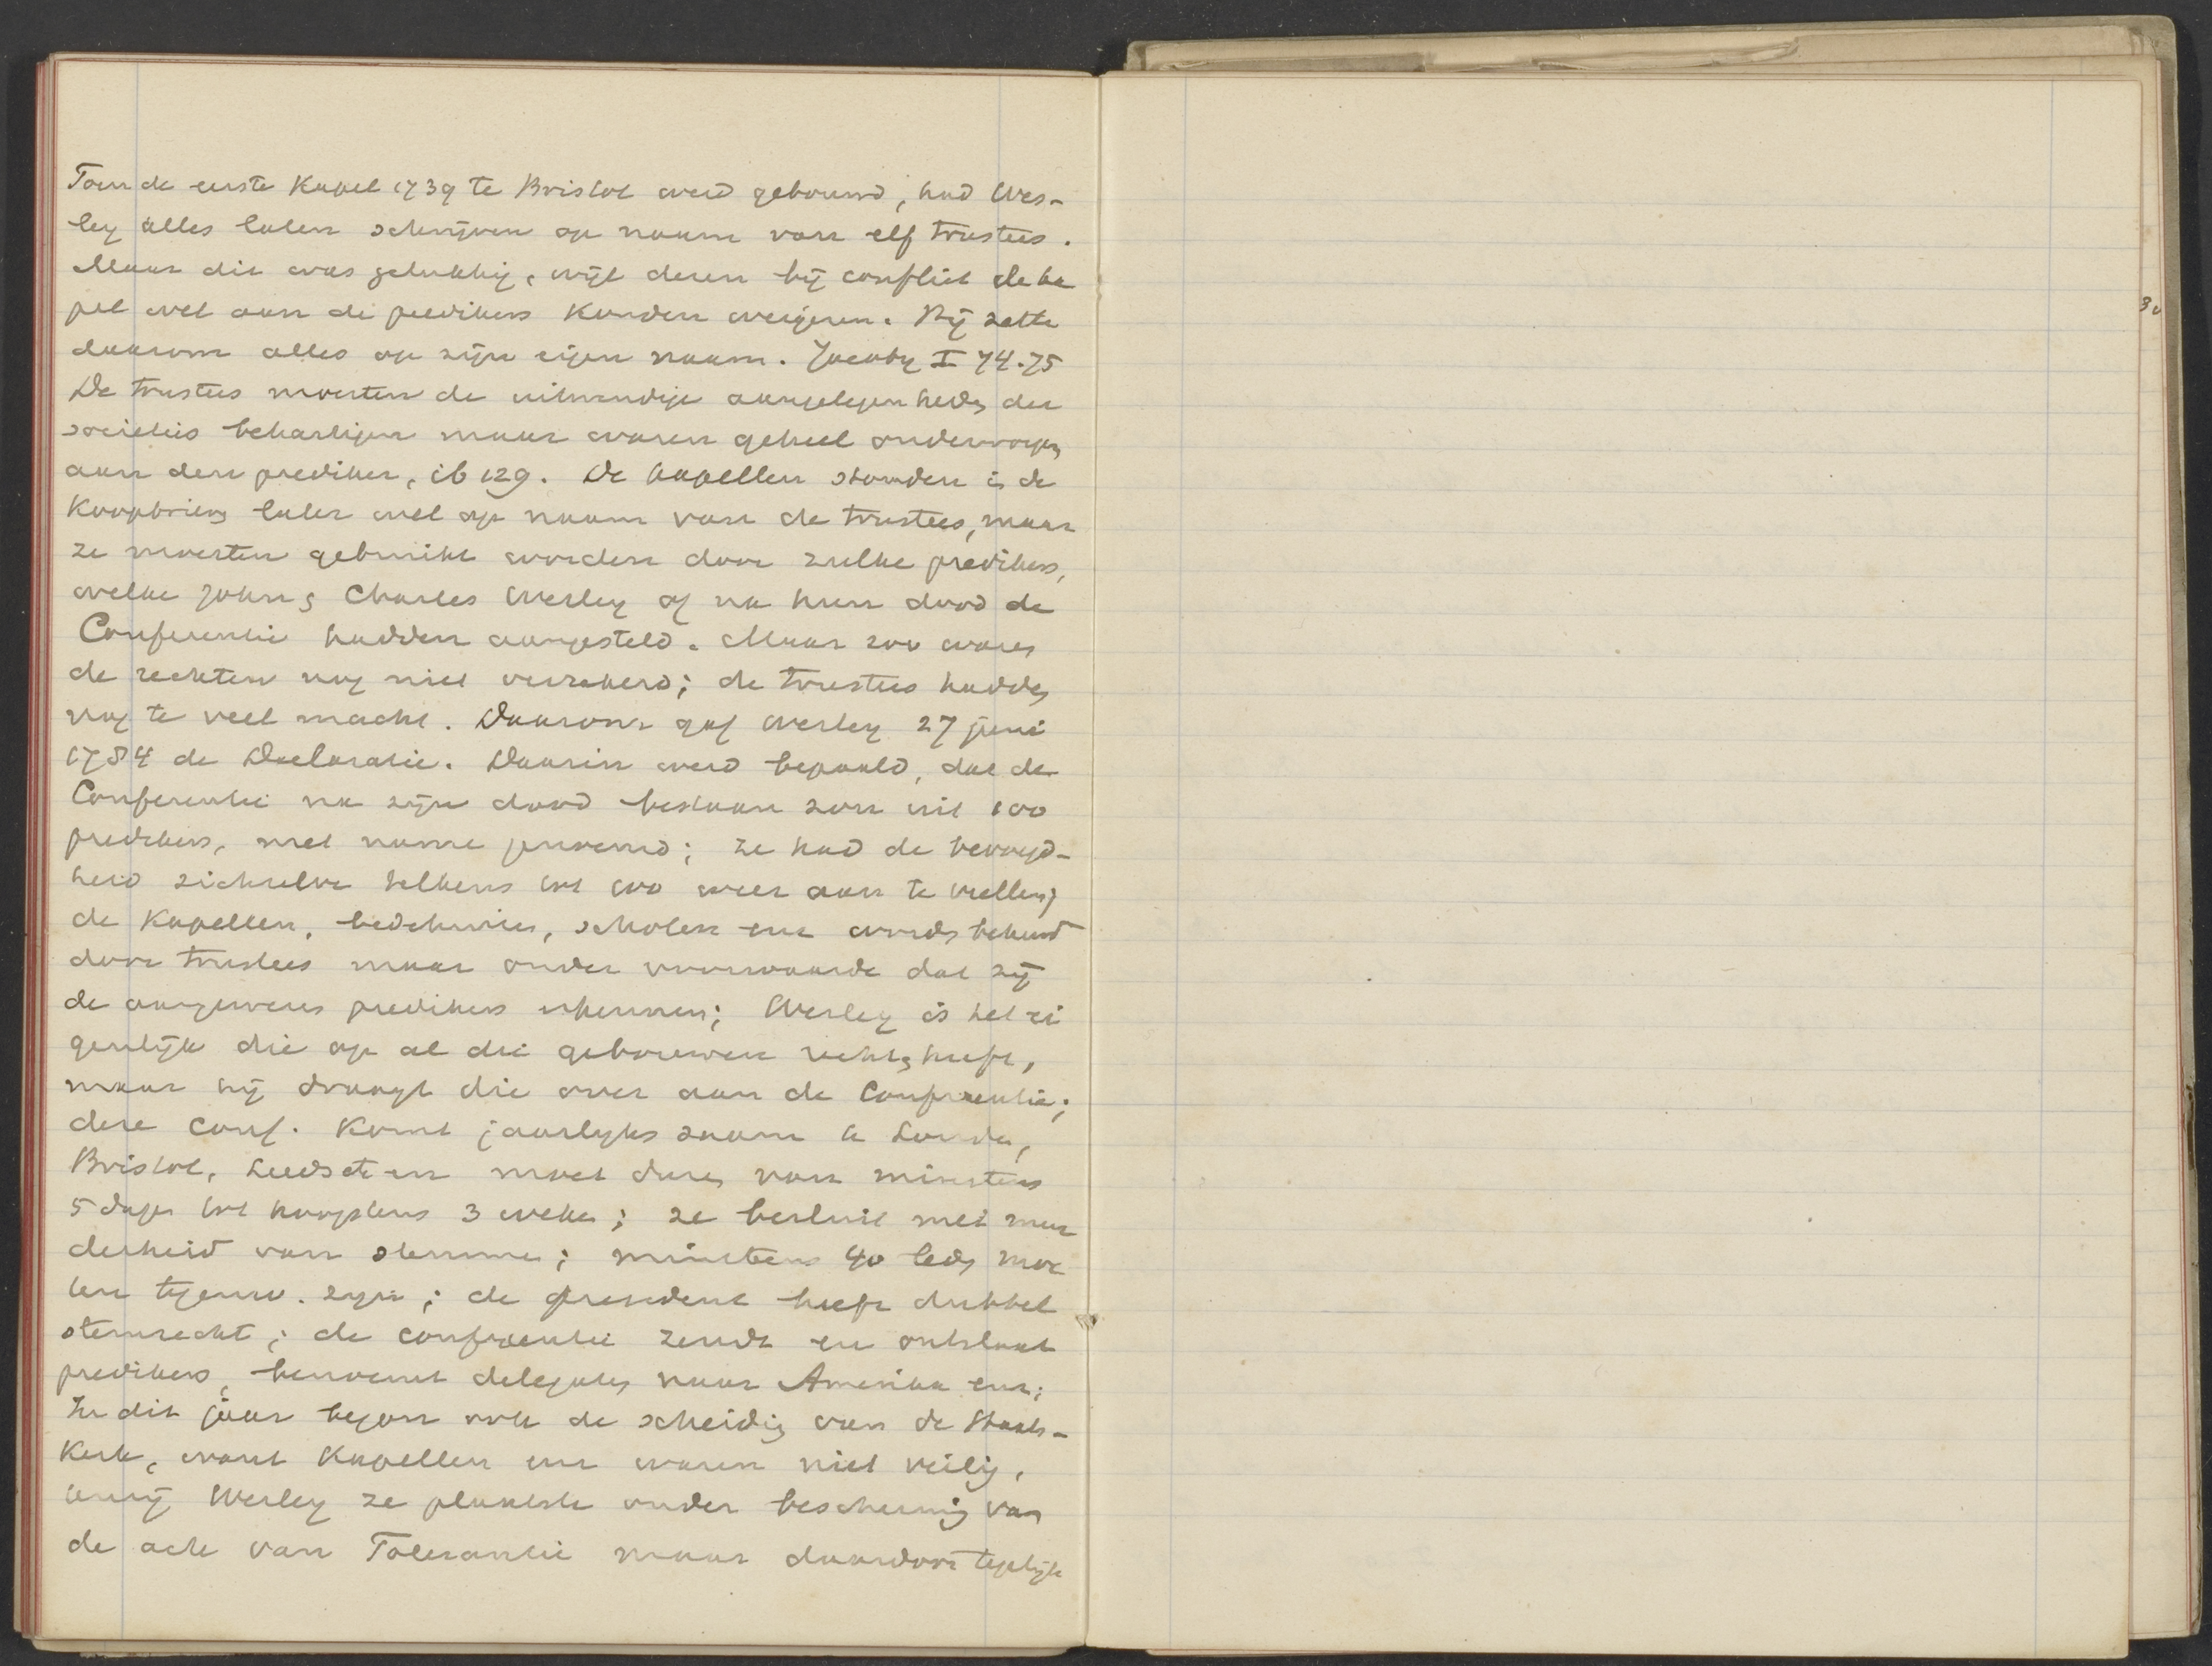 Toen de eerste Kapel 1739 te Bristol werd gebouwd, had Wes-
ley alles laten schrijven op naam van elf trustees.
Maar dit was gelukkig, wijl dezen bij conflict de ka
pel wel aan de predikers konden weigeren. Hij zette
daarom alles op zijn eigen naam. Jacoby I 74.75
De trustees moesten de uitwendige aangelegenheden der
societeis behartigen maar waren geheel onderworpen
aan den prediker, ib 129. De kapellen stonden in de
Koopbrieven later wel op naam van de trustees, maar
ze moesten gebruikt worden door zulke predikers,
welke John & Charles Wesley of na hun dood de
Conferentie hadden aangesteld. Maar zoo waren
de rechten nog niet verzekerd; de trustees hadden
nog te veel macht. Daarom gaf Wesley 27 juni
1784 de Declaratie. Daarin werd bepaald, dat de
Conferentie na zijn dood bestaan zou uit 100
predikers, met name genoemd; ze had de bevoegd-
heid zichzelve telkens tot 100 weer aan te vullen;
de Kapellen, bedehuizen, scholen enz worden beheerd
door trustees maar onder voorwaarde dat zij
de aangewezen predikers erkennen; Wesley is het ei
genlijk die op al die gebouwen rechten heeft,
maar hij draagt die over aan de Conferentie;
deze Conf. Komt jaarlyks zaam te Londen,
Bristol, Leeds etc en moet duren van minstens
5 dagen tot hoogstens 3 weken; ze besluit met meer
derheid van stemmen; minstens 40 leden moe
ten tegenw. zijn; de president heeft dubbel
stemrecht; de conferentie zendt en ontslaat
predikers, benoemt delegaten naar Amerika enz;
In dit jaar begon ook de scheiding van de Staats-
Kerk, want Kapellen enz waren niet veilig,
tenzij Wesley ze plaatste onder bescherming van
de acte van Tolerantie maar daardoor tegelijk